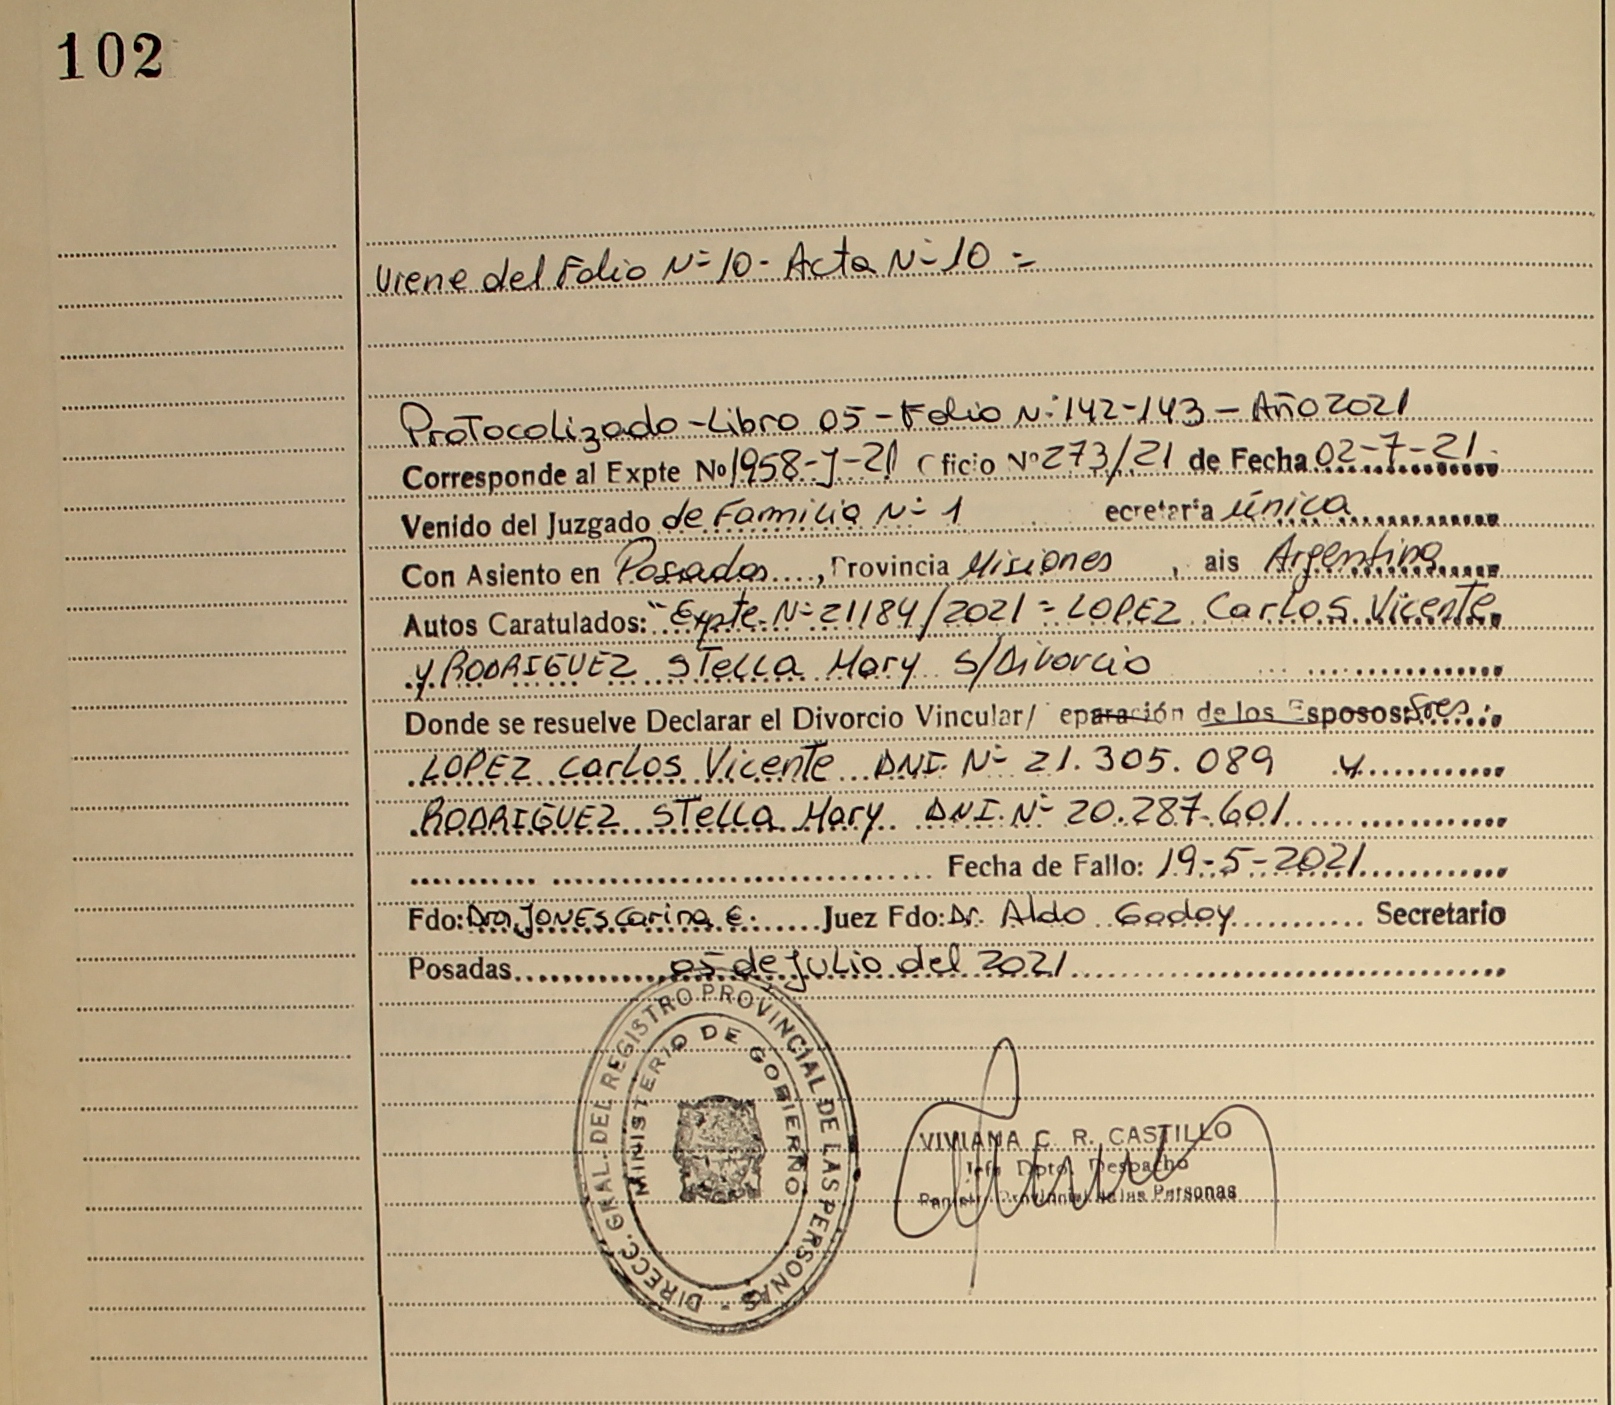 102
Viene del Folio Nº 10 - Acta Nº 10 =
Protocolizado - Libro 05 - Folio Nº 142-143 - Año 2021
Corresponde al Expte Nº 1958-J-21 Oficio Nº 273/21 de Fecha 02-7-21.
Venido del Juzgado de Familia Nº 1 ecretaria única
Con Asiento en Posadas...., Provincia Misiones , ais Argentina
Autos Caratulados: "Expte. Nº 21184/2021 = LOPEZ Carlos Vicente
y RODRIGUEZ Stella Mary S/Divorcio
Donde se resuelve Declarar el Divorcio Vincular/ eparación de los Esposos: Sres.
LOPEZ Carlos Vicente DNI. Nº 21.305.089 y
RODRIGUEZ Stella Mary DNI. Nº 20.287.601
Fecha de Fallo: 19-5-2021
Fdo: Dra. JONES Carina E. Juez Fdo: Dr. Aldo Godoy Secretario
Posadas 05 de Julio del 2021
DIRECC. GRAL. DEL REGISTRO PROVINCIAL DE LAS PERSONAS -
MINISTERIO DE GOBIERNO
VIVIANA C. R. CASTILLO
Jefa Dpto. Despacho
Provincial de las Personas